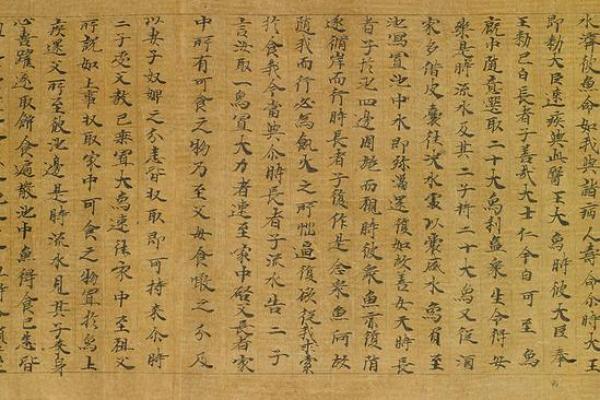 水濟彼魚命如我與諸病人壽命尒時大王
即勅大臣速疾與此醫王大象時彼大臣奉
王勅已白長者子善哉大士仁今自可至象
廄中隨意選取二十大象利益衆生令得安
樂是時流水及其二子將二十大象又從酒
家多借皮囊往決水處以囊盛水象負至
池寫置池中水即弥滿還復如故善女天時長
者子於池四邊周旋而視時彼衆魚亦復隨
逐循岸而行時長者子復作是念衆魚何故
隨我而行必為飢火之所惱逼復欲從我求索
於食我今當與尒時長者子流水告二子
言汝取一象冣大力者速至家中啓父長者家
中所有可食之物乃至父母食噉之分及
以妻子奴婢之分悉皆収取即可持來尒時
二子受父教已乘冣大象速往家中至祖父
所說如上事収取家中可食之物置於象上
疾還父所至彼池邊是時流水見其子來身
心喜躍遂取餅食遍散池中魚得食已悉皆